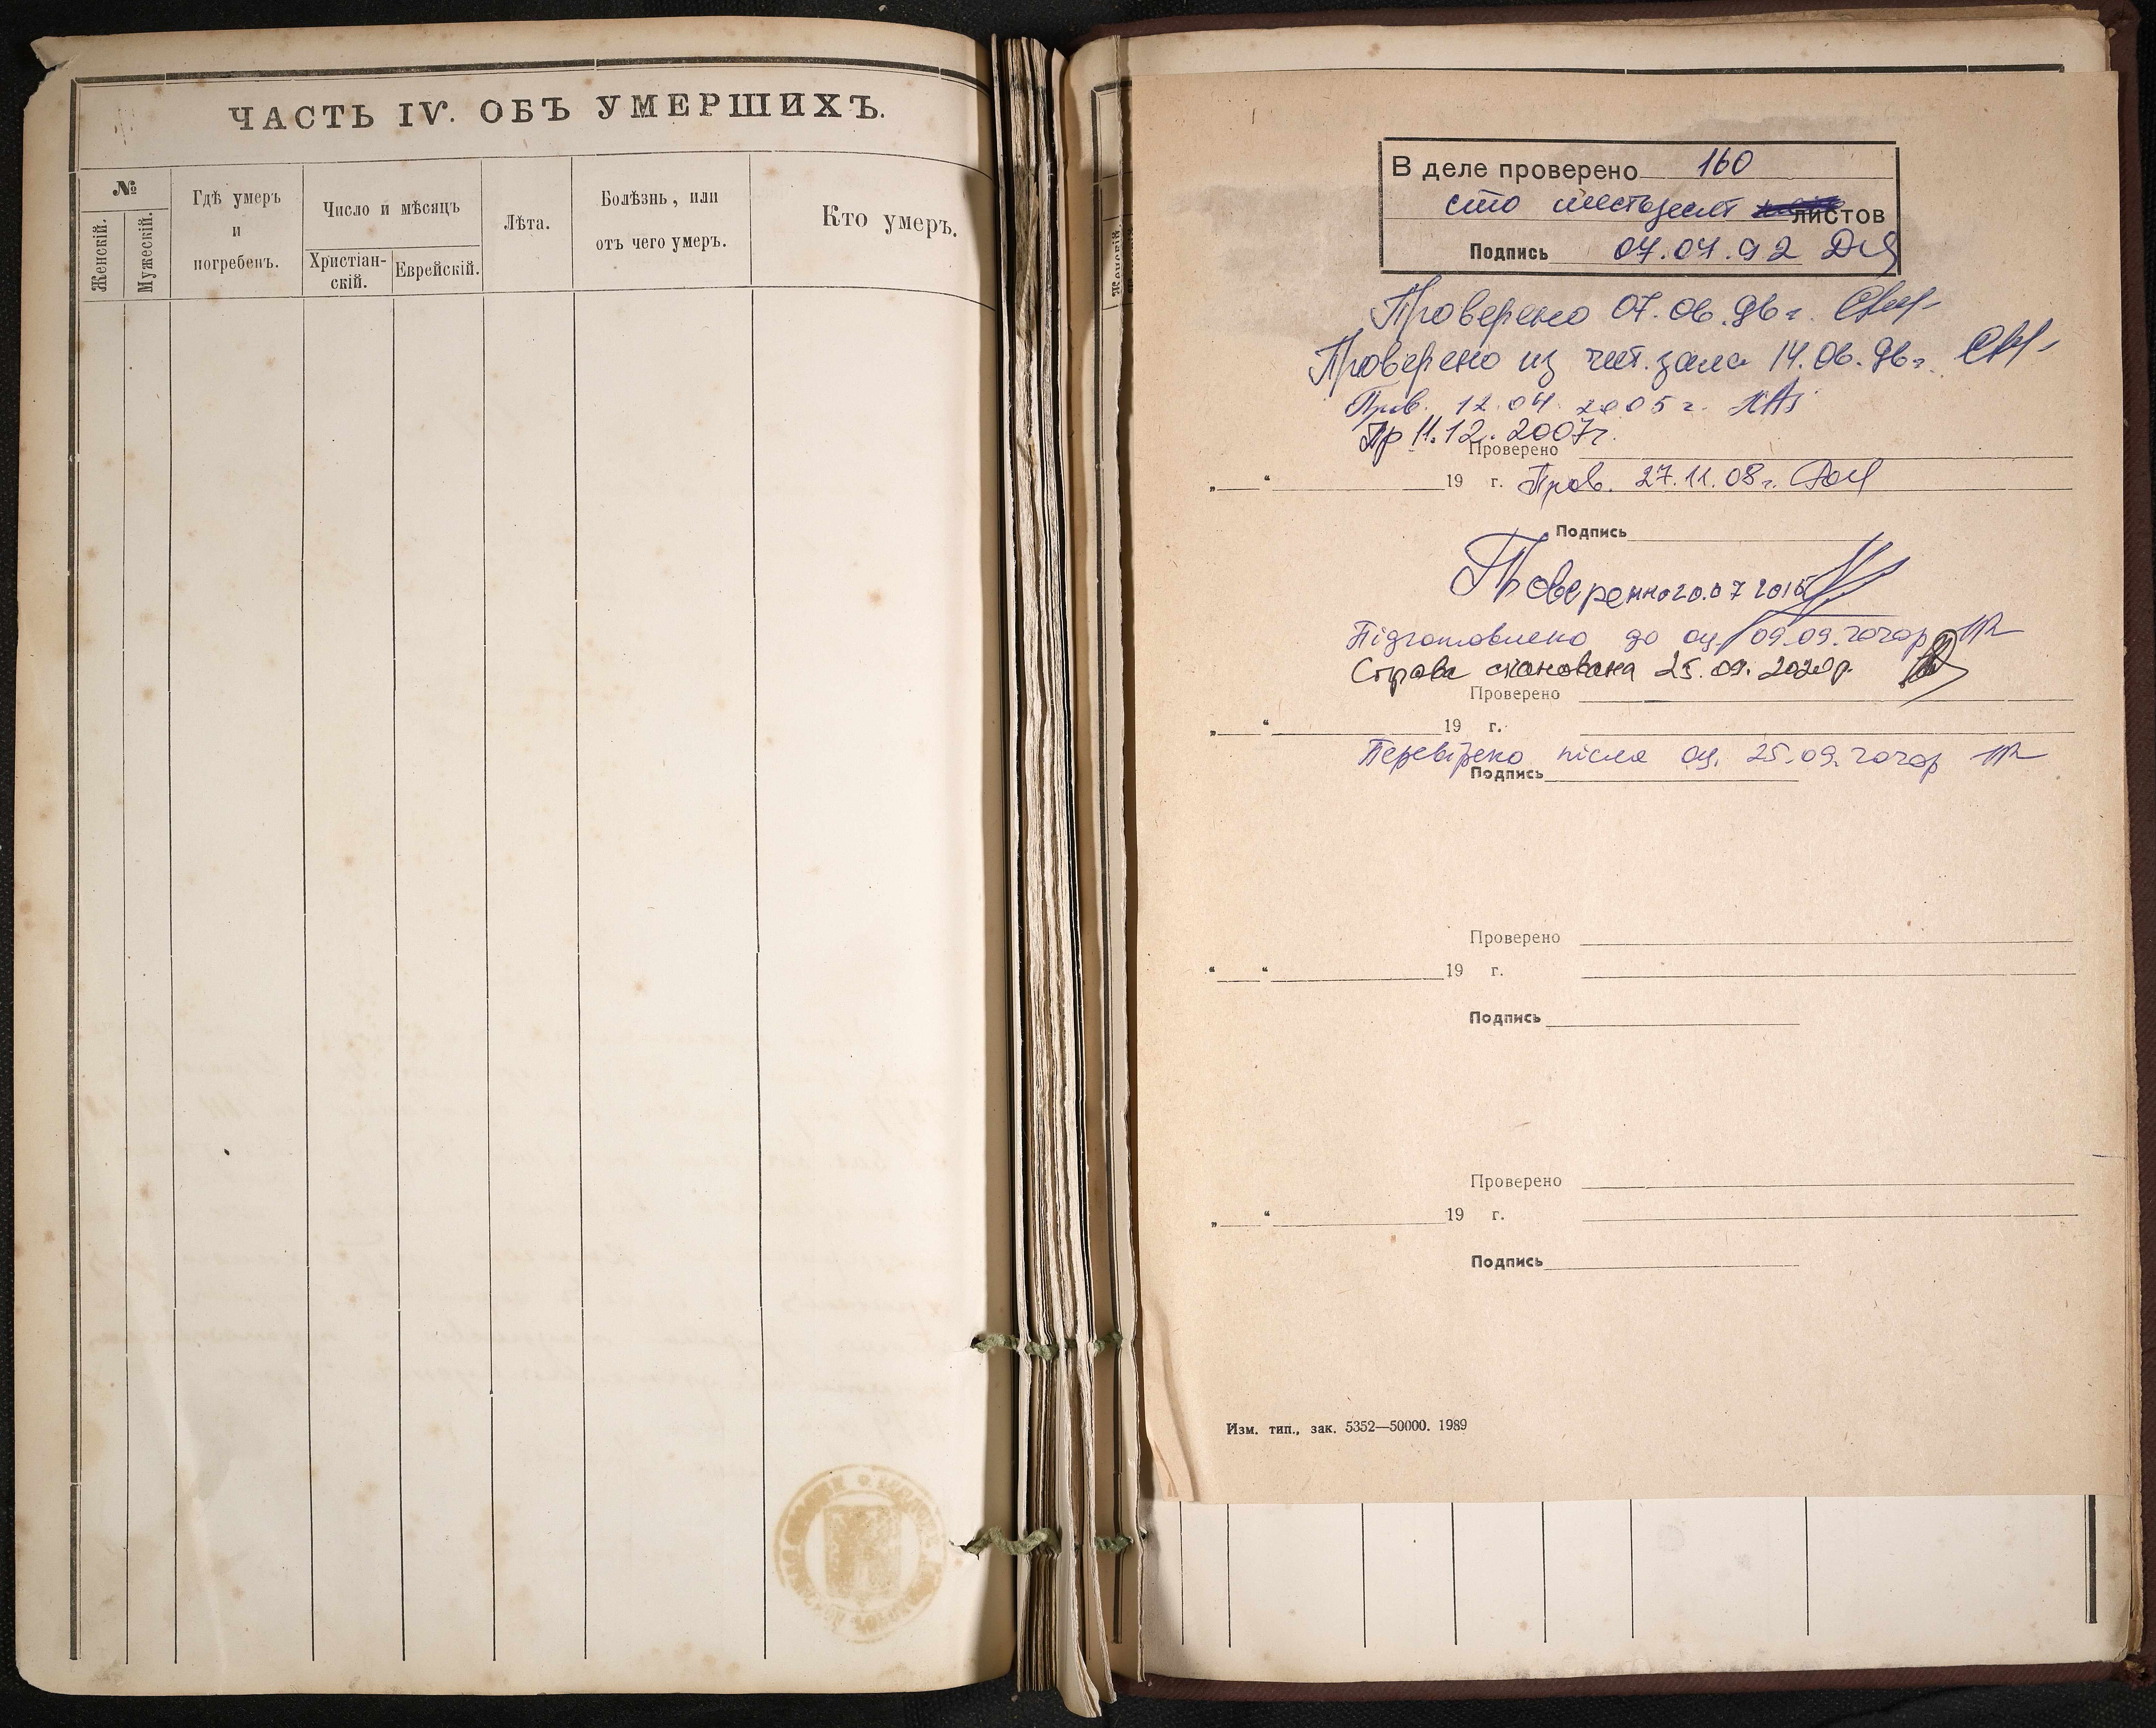 ЧАСТЬ IV. ОБЪ УМЕРШИХЪ.
№
Женскій.
Мужескій.
Гдѣ умеръ
и
погребенъ.
Число и мѣсяцъ
Христіан-
скій.
Еврейскій.
Лѣта.
Болѣзнь, или
отъ чего умеръ.
Кто умеръ.
В деле проверено 160
сто шестьдесят листов
Подпись 07.07.92
Проверено 07.06.96 г.
Проверено из чит. зала 14.06.96 г.
Пров. 12.04.2005 г.
Пр 11.12.2007 г.
Проверено
„ “ 19 г. Пров. 27.11.08 г.
Подпись
Проверенно 20.07 2015
Підготовлено до оц. 09.09.2020р
Справа сканована 25.09.2020р.
Проверено
„ “ 19 г.
Перевірено після оц. 25.09.2020р
Подпись
Проверено
“ “ 19 г.
Подпись
Проверено
„ “ 19 г.
Подпись
Изм. тип., зак. 5352—50000. 1989